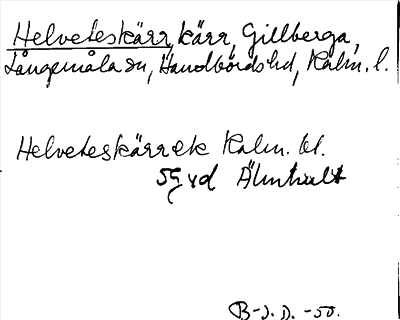 Helveteskärr, kärr, Gillberga,
Långemåla sn, Handbörds hd, Kalm. l.
Helveteskärret Kalm. bl.
5G vd Älmhult
B-J. D. -50.